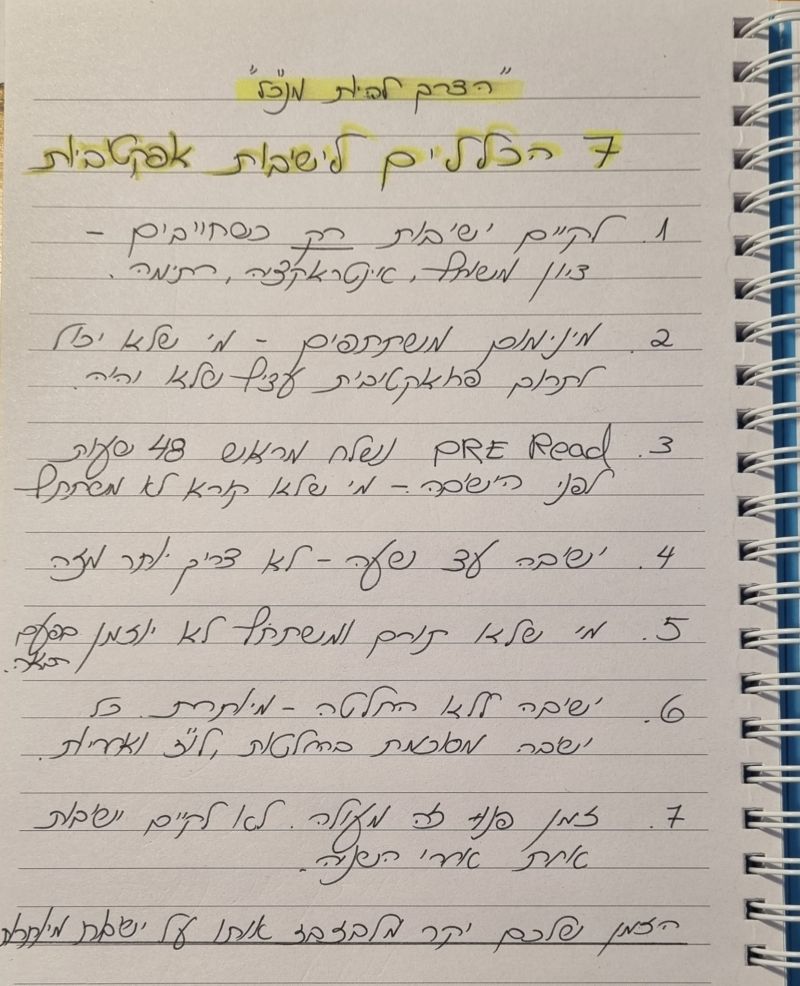 "הדרך לבית מנכ"ל"
7 הכללים לישיבות אפקטיביות
1. לקיים ישיבות רק כשחייבים -
דיון משותף, אינטראקציה, רתימה.
2. מינימום משתתפים - מי שלא יכול
לתרום פרואקטיבית עדיף שלא יהיה.
3. PRE Read נשלח מראש 48 שעות
לפני הישיבה - מי שלא קורא לא משתתף
4. ישיבה עד שעה - לא צריך יותר מזה
5. מי שלא תורם ומשתתף לא יוזמן בפעם
הבאה.
6. ישיבה ללא החלטה - מיותרת. כל
ישיבה מסוכמת בהחלטות, לו"ז ואחריות.
7. זמן פנוי זה מעולה. לא לקיים ישיבות
אחת אחרי השניה.
הזמן שלכם יקר מלבזבז אותו על ישיבות מיותרות